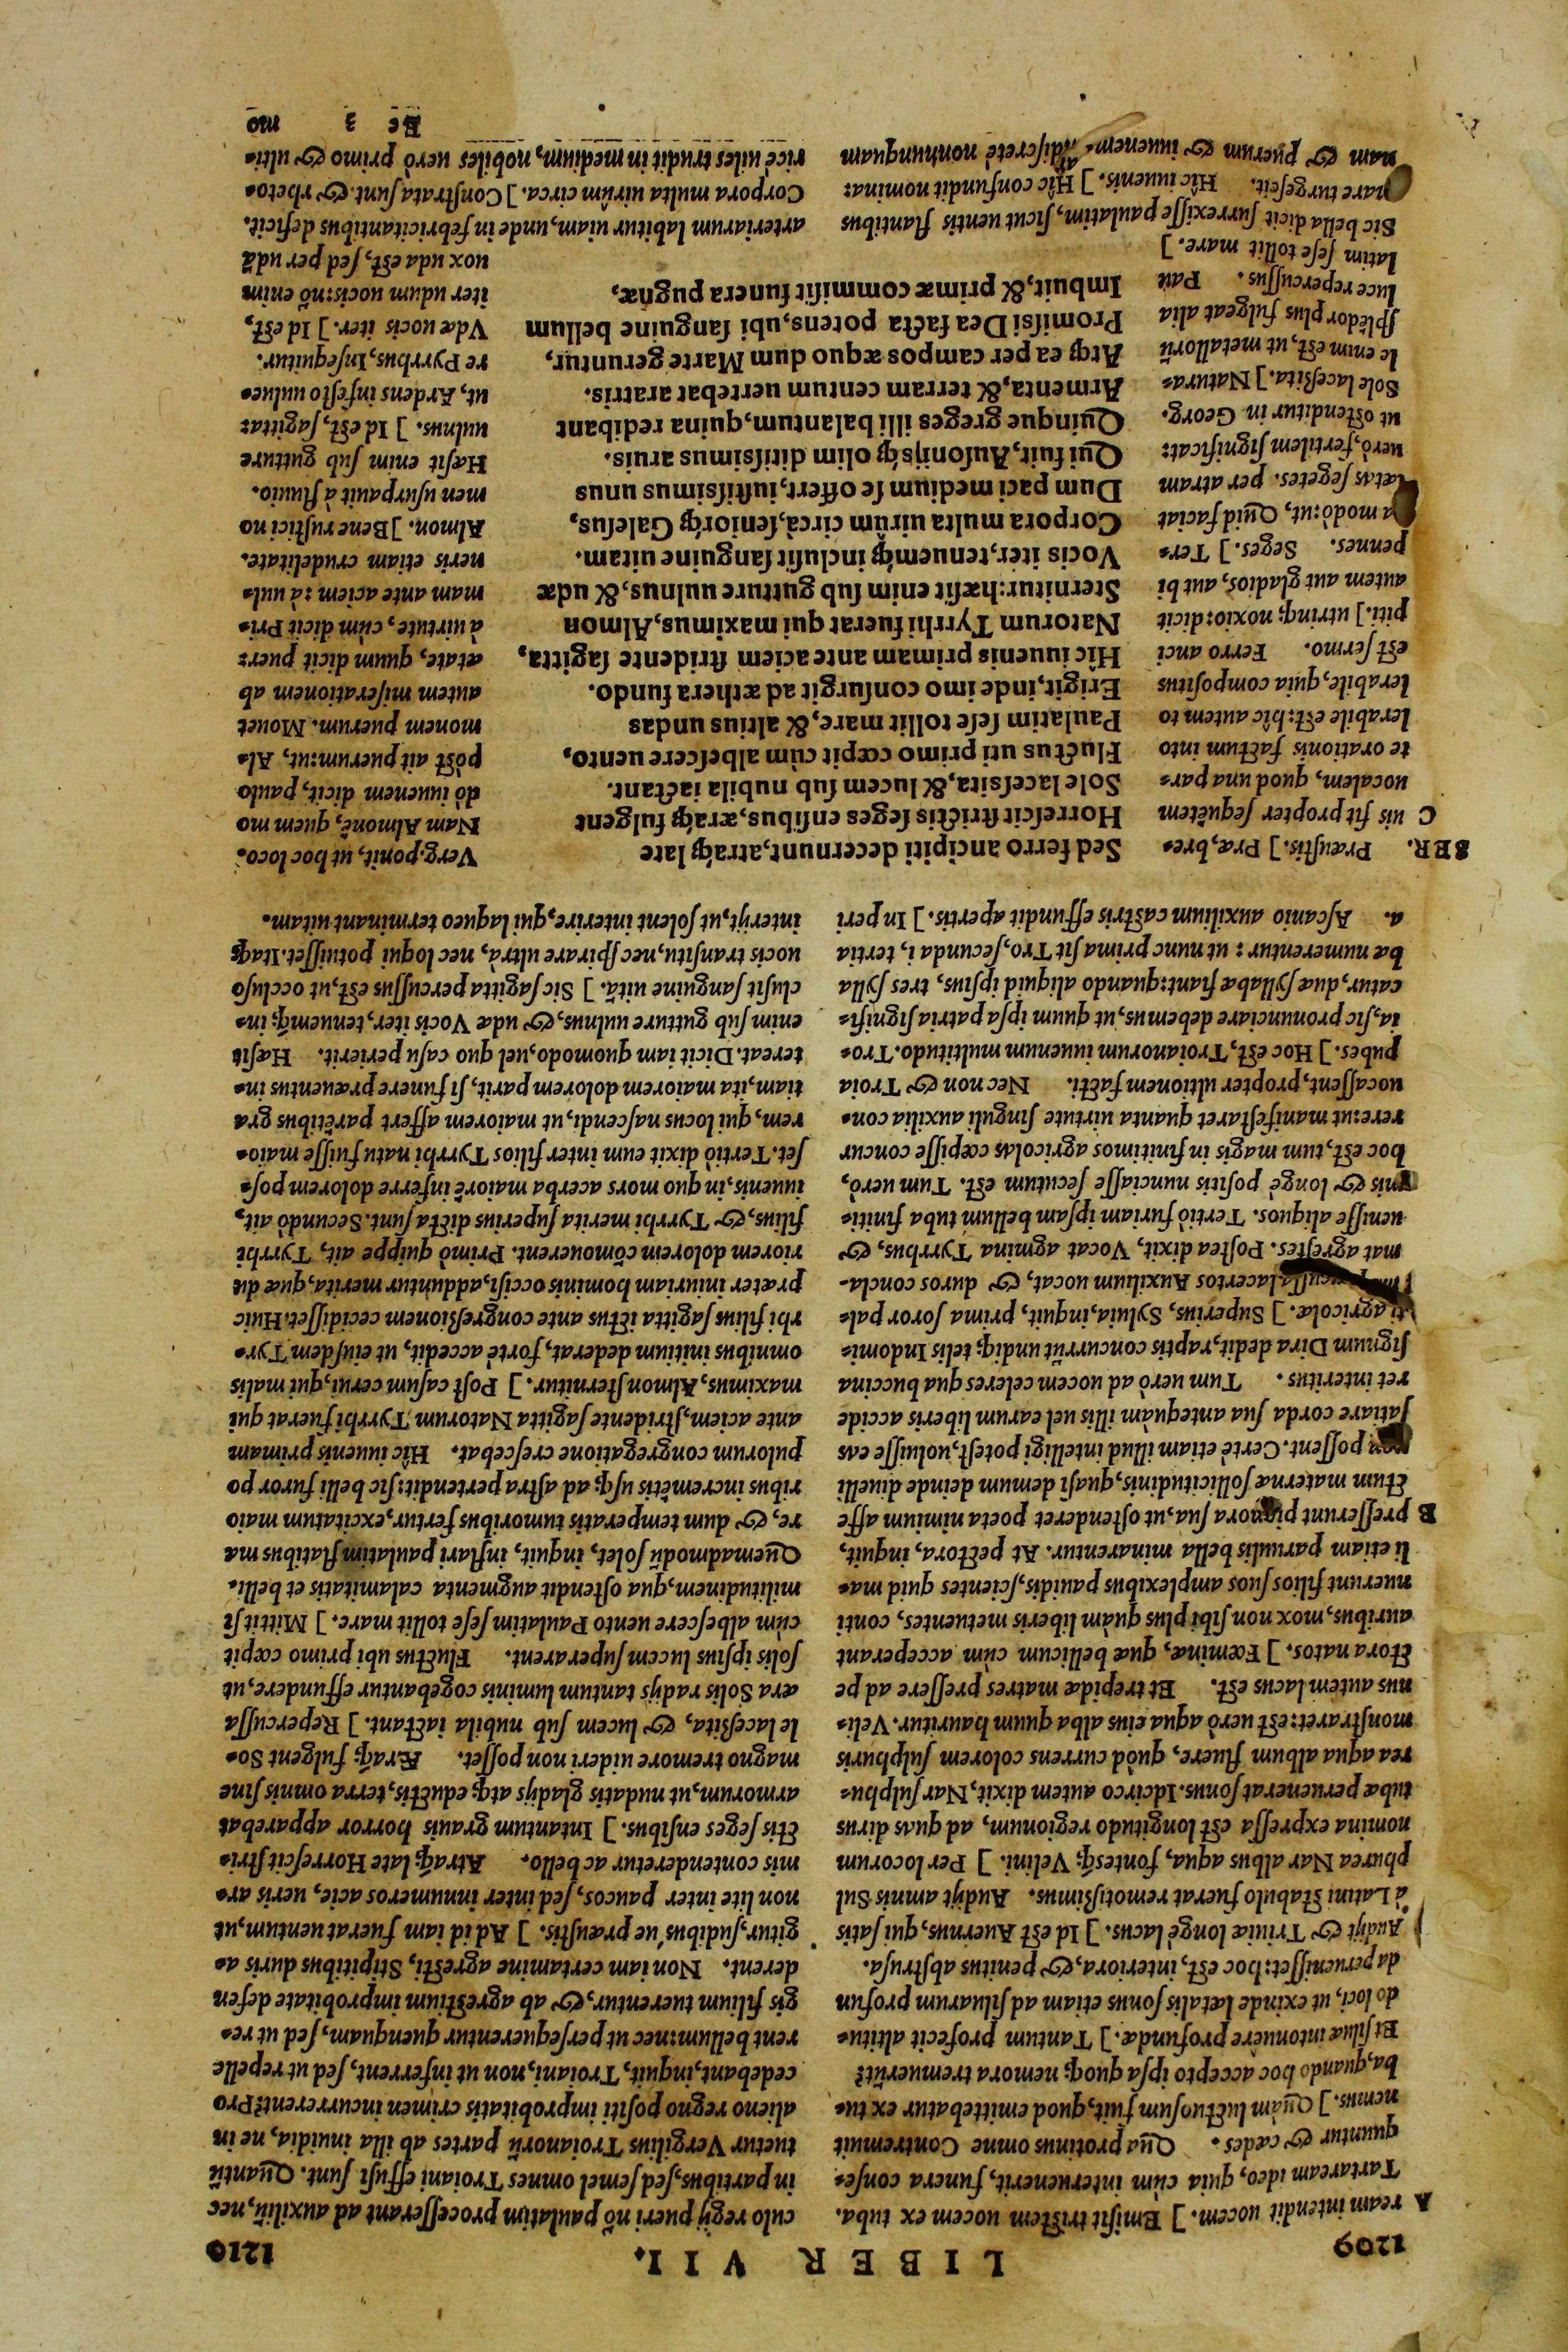 1209
LIBER VII.
1210
A ream intendit uocem.] Emisit tristem uocem ex tuba.
Tartaream ideo, quia cùm interuenerit, funera conse-
quuntur & cædes. Qua protinus omne Contremuit
nemus.] Quàm luctuosum fuit, quod emittebatur ex tu-
ba, quando hoc accepto ipsa quoq; nemora tremuerūt?
Et siluæ intonuere profundæ.] Tantum profecit altitu-
do loci, ut exinde lætalis sonus etiam ad siluarum profun
da peruenisset: hoc est, interiora, & penitus abstrusa.
Audijt & Triuiæ longè lacus.] Id est Auernus, qui satis
à Latini stabulo fuerat remotissimus. Audijt amnis Sul
phurea Nar albus aqua, fontesq́; Velini.] Per locorum
nomina expressa est longitudo regionum, ad quas dirus
tubæ peruenerat sonus. Idcirco autem dixit, Nar sulphu-
rea aqua album fluere, quòd currens colorem sulphuris
monstraret: est uerò aqua eius alba quum hauritur. Veli-
nus autem lacus est. Et trepidæ matres pressere ad pe
ctora natos.] Fœminæ, quæ bellicum cùm acceperant
auribus, mox non sibi plus quàm liberis metuentes, conti
nuerunt filios suos amplexibus pauidis, scientes quid ma-
li etiam paruulis bella minarentur. At pectora, inquit,
B presserunt pignora sua, ut ostenderet poeta nimium affe
ctum maternæ sollicitudinis, quasi demum deinde diuelli
non possent. Certè etiam illud intelligi potest, uoluisse eas
satiare corda sua antequàm illis uel earum liberis accide
ret interitus. Tum uerò ad uocem celeres qua buccina
signum Dira dedit, raptis concurrūt undiq; telis Indomi-
ti agricolæ.] Superius, Syluia, inquit, prima soror pal-
lacertos Auxilium uocat, & duros concla-
mat agrestes. Postea dixit, Vocat agmina Tyrrhus, &
uenisse aliquos. Tertiò furiam ipsam bellum tuba finiti-
mis & longè positis nunciasse secutum est. Tum uerò,
hoc est, tum magis in finitimos agricolas cœpisse concur
rere: ut manifestaret quanta uirtute singuli auxilia con-
uocassent, propter ultionem facti. Nec non & Troia
pubes.] Hoc est, Troianorum iuuenum multitudo. Tro-
ia, sic pronunciare debemus, ut quum ipsa patria signifi-
catur, duæ syllabæ fiant: quando aliquid ipsius, tres sylla
bæ numerentur: ut nunc prima sit Tro, secunda i, tertia
a. Ascanio auxilium castris effundit apertis.] In peri
culo regij pueri nō paulatim processerant ad auxiliū, nec
in partibus, sed semel omnes Troiani effusi sunt. Quantū
tuetur Vergilius Troianorū partes ab illa inuidia, ne in
alieno regno positi improbitatis crimen incurrerent? Pro
cedebant, inquit, Troiani, non ut inferrent, sed ut repelle
rent bellum: nec ut persequerentur quenquam, sed ut re-
gis filium tuerentur, & ab agrestium improbitate defen
derent. Non iam certamine agresti, Stipitibus duris a-
gitur, sudibus ue præustis.] Ad id iam fuerat uentum, ut
non lite inter paucos, sed inter innumeros acie, ueris ar-
mis contenderetur ac bello. Atraq́; late Horrescit stri-
ctis seges ensibus.] Intantum grauis horror apparebat
armorum, ut nudatis gladijs atq; eductis, terra omnis sine
magno tremore uideri non posset. Æraq́; fulgent So-
le lacessita, & lucem sub nubila iactant.] Repercussa
æra Solis radijs tantum luminis cogebantur effundere, ut
solis ipsius lucem superarent. Fluctus ubi primo cœpit
cùm albescere uento Paulatim sese tollit mare.] Mittit si
militudinem, qua ostendit augmenta calamitatis et belli.
Quemadmodū solet, inquit, inflari paulatim flatibus ma
re, & dum temperatis tumoribus fertur, excitatum maio
ribus incremētis usq; ad astra pertendit: sic belli furor po
pulorum congregatione crescebat. Hîc iuuenis primam
ante aciem, stridente sagitta Natorum Tyrrhi fuerat qui
maximus, Almon sternitur.] Post casum cerui, qui malis
omnibus initium dederat, fortè accedit, ut eiusdem Tyr-
rhi filius sagitta ictus ante congressionem cecidisset. Huic
præter iniuriam hominis occisi, adduntur merita, quæ du
riorem dolorem cōmouerent. Primò quippe ait, Tyrrhi
filius, & Tyrrhi merita superius dicta sunt. Secundò ait,
iuuenis, in quo mors acerba maiorē inferre dolorem pos-
set. Tertiò dixit eum inter filios Tyrrhi natu fuisse maio-
rem, qui locus nascendi, ut maiorem affert parētibus gra
tiam, ita maiorem dolorem parit, si funere præuentus in-
tereat. Dicit iam quomodo, uel quo casu perierit. Hæsit
enim sub gutture uulnus, & udæ Vocis iter, tenuemq́; in-
clusit sanguine uitā.] Sic sagitta percussus est, ut occluso
uocis transitu, nec spirare ultrà, nec loqui potuisset. Itaq;
interijt, ut solent interire, qui laqueo terminant uitam.
SER. Præustis.] Præ, bre-
C uis fit propter sequētem
uocalem, quod una par-
te orationis factum into
lerabile est: hîc autem to
lerabile, quia compositus
est sermo. Ferro anci
piti.] utrinq; noxio: dicit
autem aut gladios, aut bi
pennes. Seges.] Ter-
ra modò: ut, Quid faciat
lætas segetes. per atram
uerò, fertilem significat:
ut ostenditur in Georg.
Sole lacessita.] Natura-
le enim est, ut metallorū
splēdor plus fulgeat alia
luce repercussus. Pau
latim sese tollit mare.]
Sic bella dicit surrexisse paulatim, sicut uentis flantibus
mare turgescit. Hîc iuuenis.] Hîc confundit nomina:
nam & puerum & iuuenem. Adiscretè nonnunquam
Sed ferro ancipiti decernunt, atraq́; late
Horrescit strictis seges ensibus, æraq́; fulgent
Sole lacessita, & lucem sub nubila iactant.
Fluctus uti primo cœpit cùm albescere uento,
Paulatim sese tollit mare, & altius undas
Erigit, inde imo consurgit ad æthera fundo.
Hîc iuuenis primam ante aciem stridente sagitta,
Natorum Tyrrhi fuerat qui maximus, Almon
Sternitur: hæsit enim sub gutture uulnus, & udæ
Vocis iter, tenuemq́; inclusit sanguine uitam.
Corpora multa uirûm circà, seniorq́; Galesus,
Dum paci medium se offert, iustissimus unus
Qui fuit, Ausonijsq́; olim ditissimus aruis.
Quinque greges illi balantum, quina redibant
Armenta, & terram centum uertebat aratris.
Atq; ea per campos æquo dum Marte geruntur,
Promissi Dea facta potens, ubi sanguine bellum
Imbuit, & primæ commisit funera pugnæ,
Verg. ponit, ut hoc loco.
Nam Almonē, quem mo
dò iuuenem dicit, paulo
pòst ait puerum: ut, Al-
monem puerum. Mouet
autem miserationem ab
ætate, quum dicit puer:
à uirtute, cùm dicit Pri-
mam ante aciem: à uul-
neris etiam crudelitate.
Almon.] Bene rustici no
men usurpauit à fluuio.
Hæsit enim sub gutture
uulnus.] Id est, sagitta:
ut, Ardens infesto uulne-
re Pyrrhus, Insequitur.
Vdæ uocis iter.] Id est,
iter udum uocis: nō enim
uox uda est, sed per udā
arteriarum labitur uiam, unde in febricitantibus deficit.
Corpora multa uirûm circa.] Constrata sunt. & rheto-
ricè uiles trudit in medium, nobiles uerò primo & ulti-
Ee 3 mo